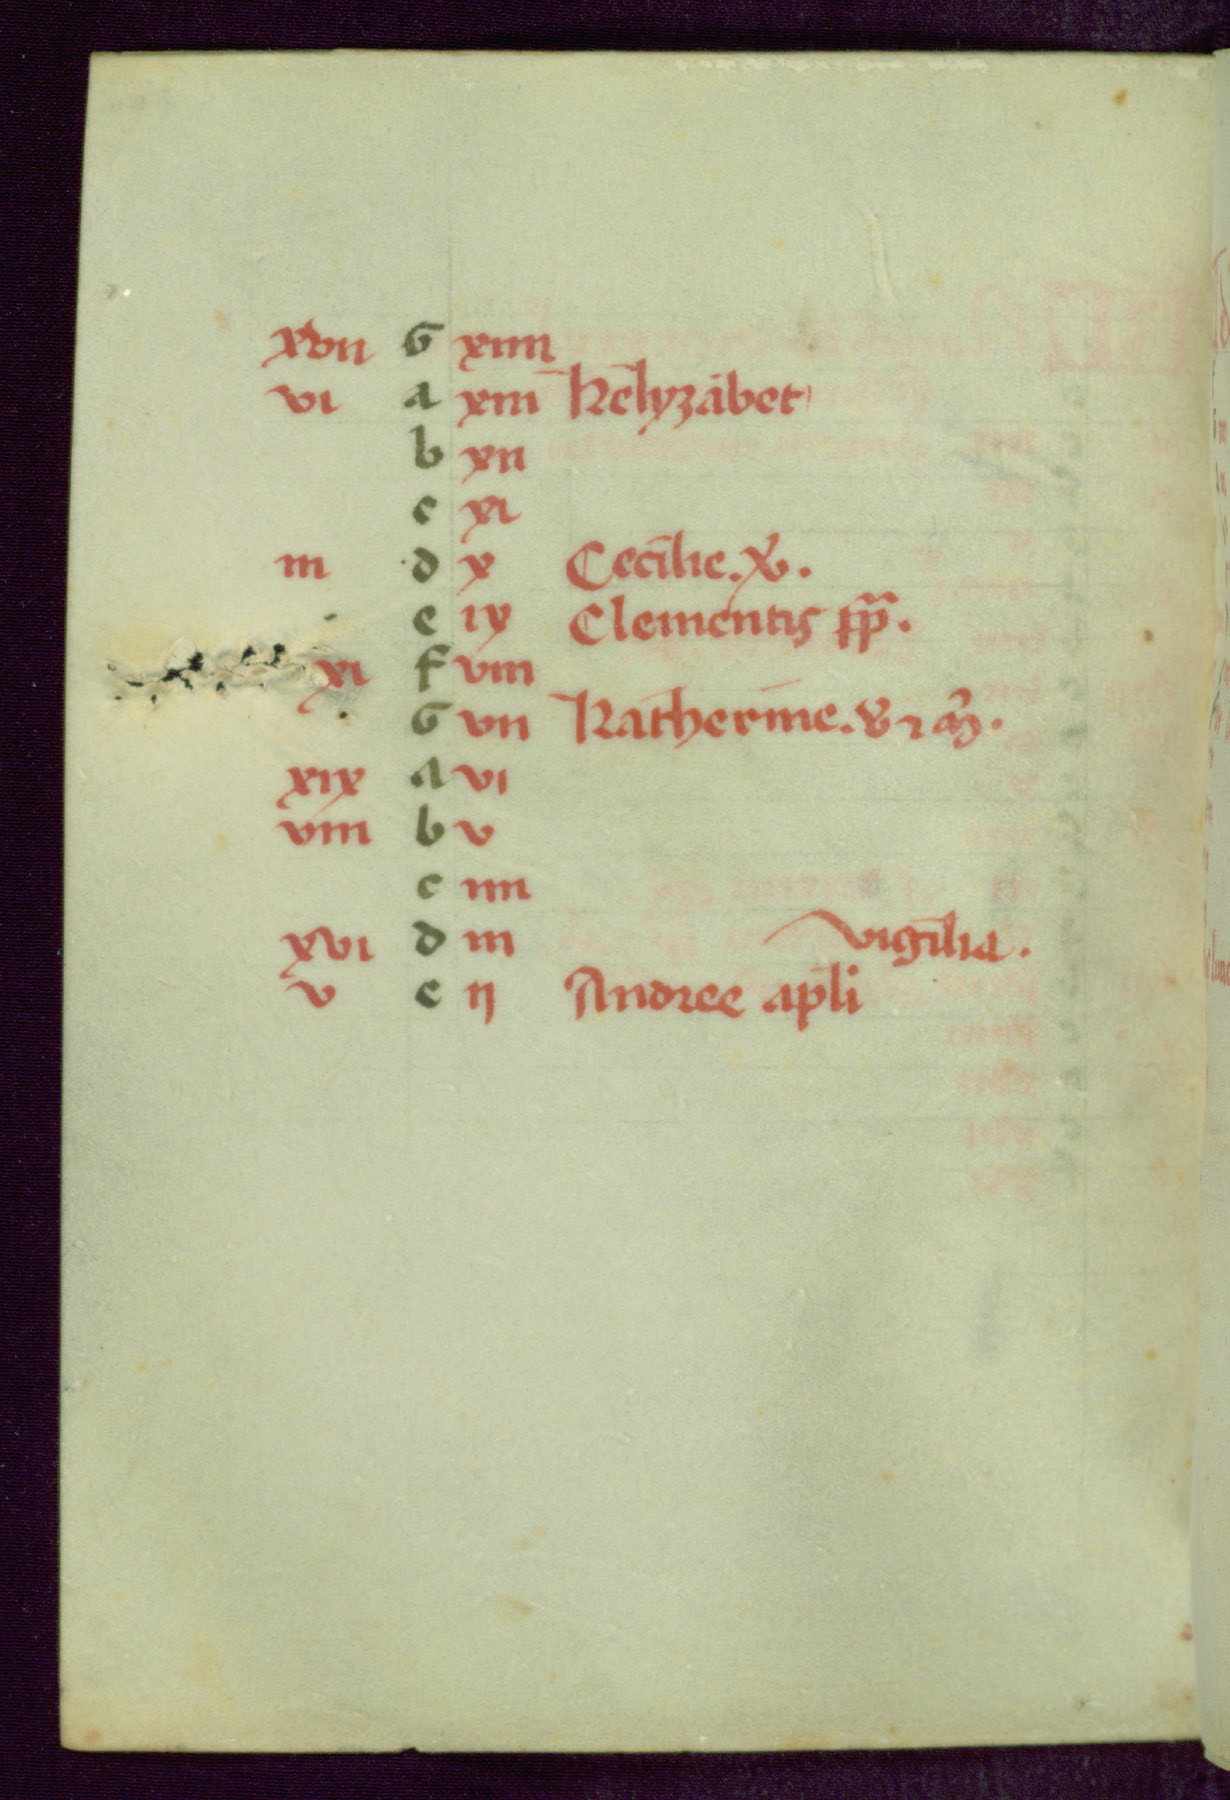 xvii G xiiii
vi a xiii Helyzabet
b xii
c xi
iii d x Cecilie. v̄.
e ix Clementis pp̄.
xi f viii
G vii Katherine. v ⁊ m̄.
xix a vi
viii b v
c iiii
xvi d iii vigilia.
v e ij Andree apl̄i